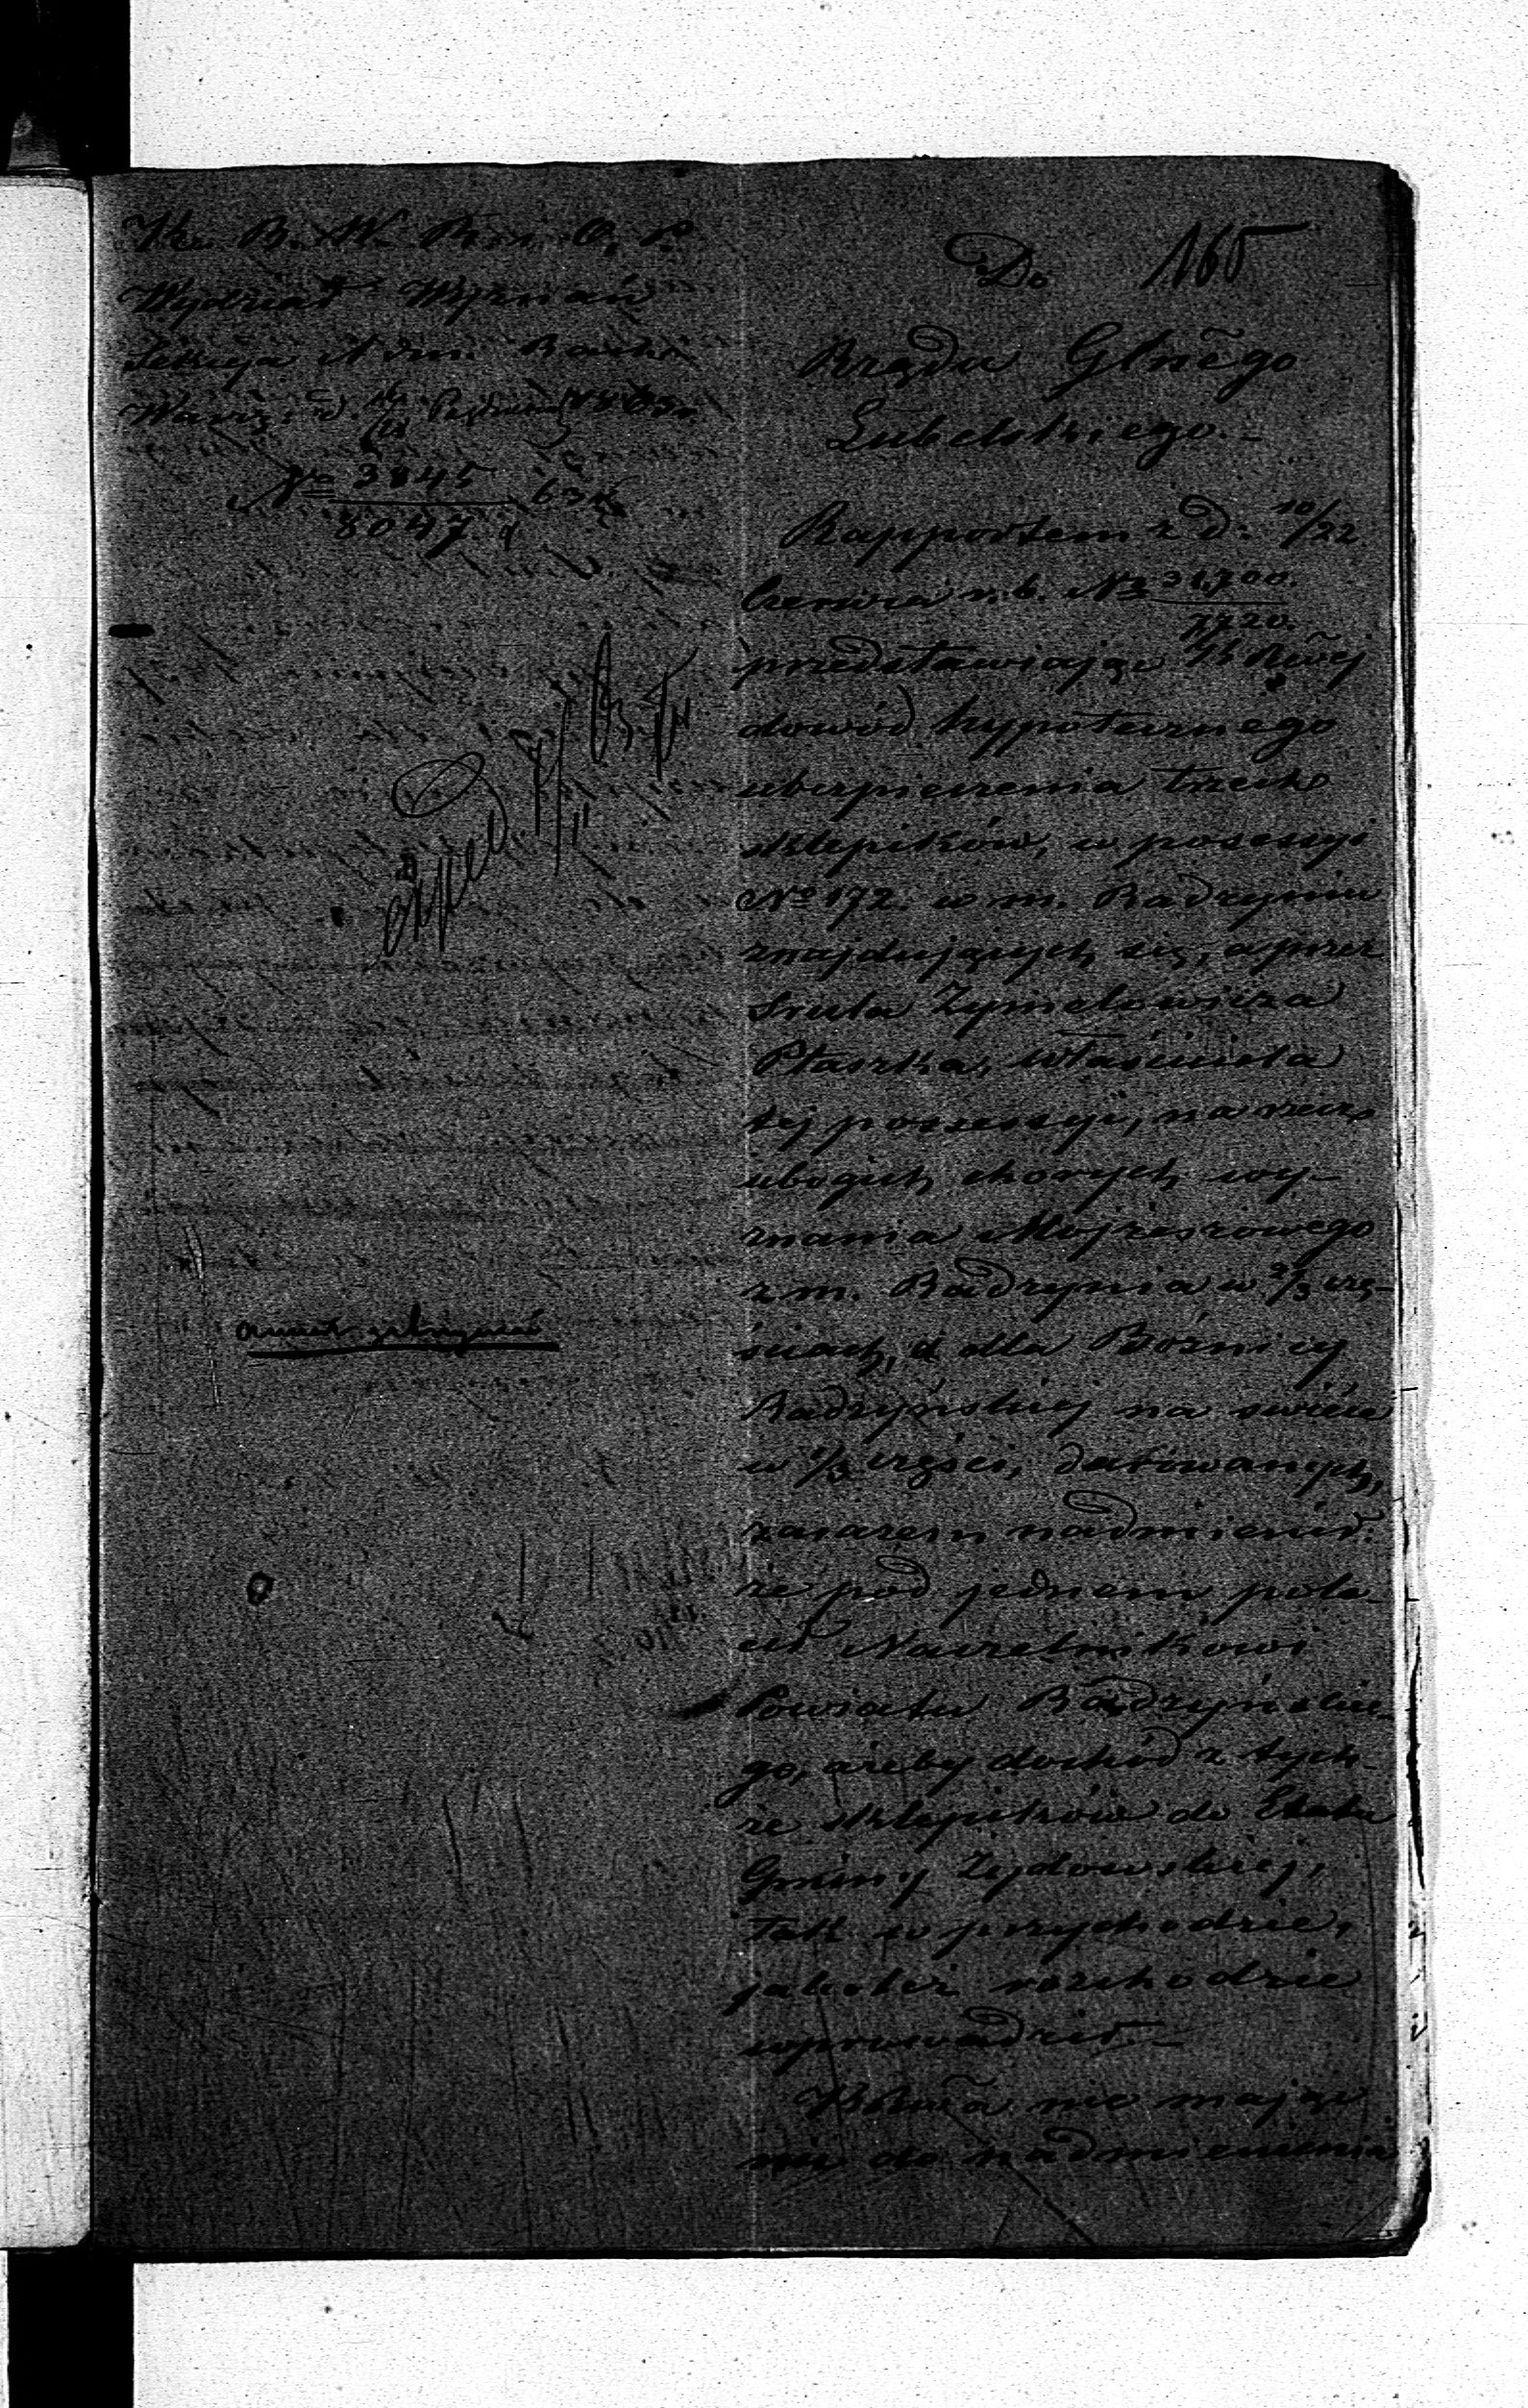 K. R. S. W. D. i O. P.
Wydział Wyznań
Sekcya Adm. Rach.
Warsz: d. Październ. 1863.
No 3845
8047
Exped.
165
Do
Rządu Glnego
Lubelskiego.-
Rapportem z d: 10/22
Czerwca r. b. No 31,700.
7720.
przedstawiając
dowód hypotecznego
ubezpieczenia trzech
sklepików, w posessyi
No 172. w m. Radzyniu
znajdujących się, a przez
Srula Zymelowicza
Ptaszka, właściciela
tej possessyi, na rzecz
ubogich chorych wy-
znania Mojżeszowego
z m. Radzynia w 2/3 czę-
ściach, a dla Bóżnicy
Radzyńskiej na świece
w 1/3 części, darowanych,
zarazem nadmienił:
że pod jednem pole-
cił Naczelnikowi
Powiatu Radzyńskie-
go, ażeby dochód z tych-
że sklepików do Etatu
Gminy Żydowskiej,
tak w przychodzie,
jakoteż rozchodzie
wprowadził.-
nie mając
nic do nadmienienia